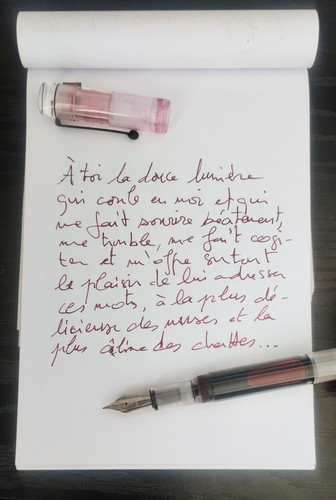 À toi la douce lumière
qui coule en moi et qui
me fait sourire béatement,
me trouble, me fait cogi-
ter et m'offre surtout
le plaisir de lui adresser
ces mots, à la plus dé-
licieuse des muses et la
plus câline des chattes...